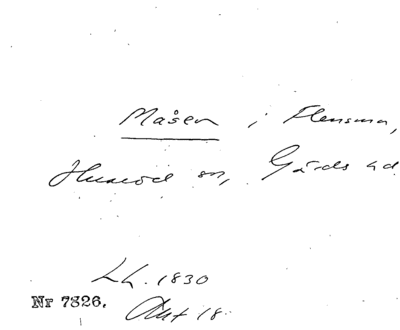 Måsen i Flensma,
Huaröd sn, Gärds hd
LL. 1830
Nr 7326. Akt 18.